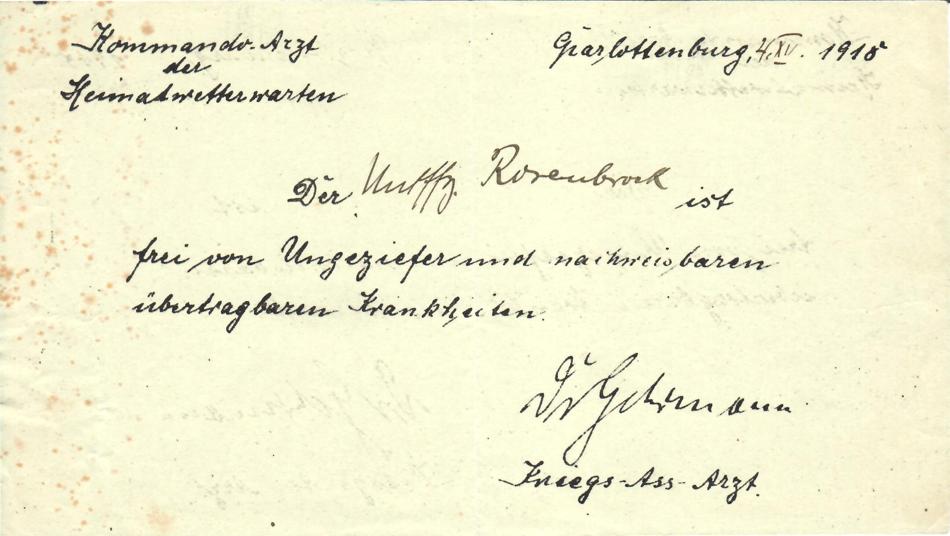 Kommando-Arzt
der
Heimatwetterwarten
Charlottenburg, 1918
Der Untffz. Rosenbrock ist
frei von Ungeziefer und nachweisbaren
übertragbaren Krankheiten.
Dr Gehrmann
Kriegs-Ass-Arzt.